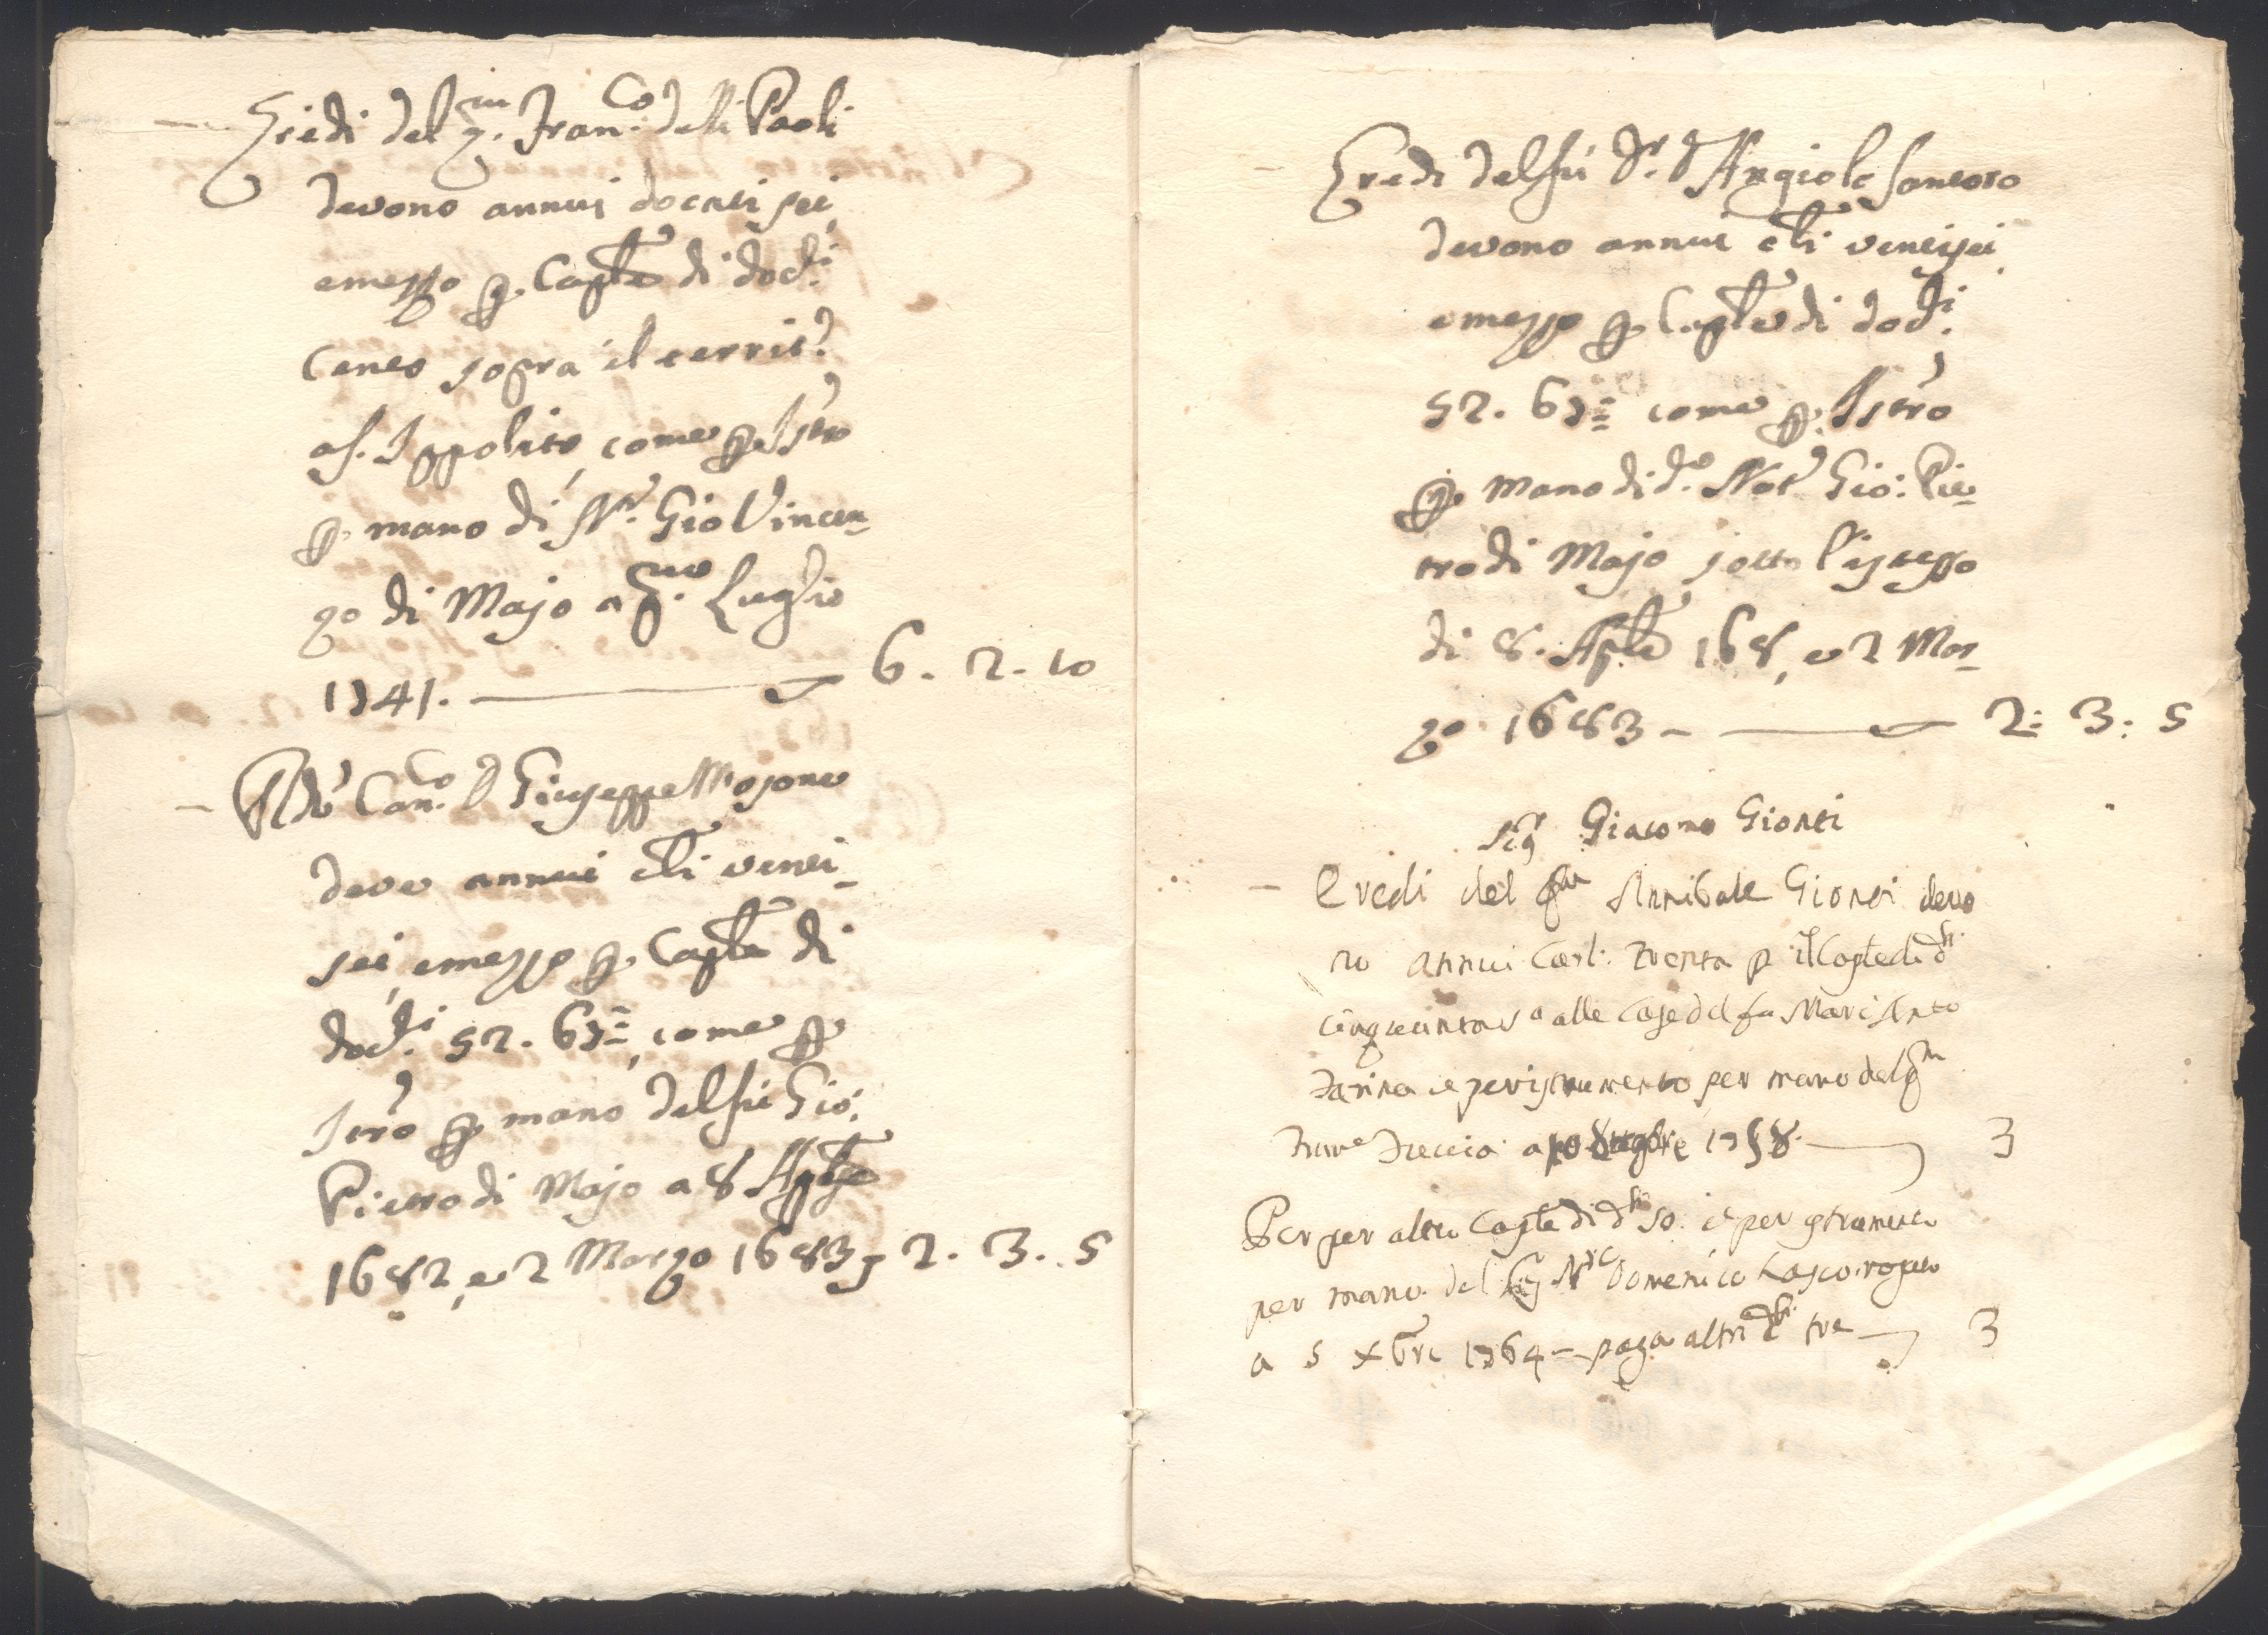 Eredi del qm. Franco. delli Paoli
devono annui docati sei,
emezzo p. Caple di docti.
Cento sopra il territ.o
a S. Ippolito, come p. Istro
p. mano di Nr. Gio Vincen-
zo di Majo a Pmo. Luglio
1741. 6. 2. 10
Rdo Canco. D Giuseppe
deve annui cli venti-
sei, emezzo p. Caple di
docti. 52. 67=, come p.
Istro p. mano del fu Gio:
Pietro di Majo a 8 Aple
1682, e 2 Marzo 1683, 2. 3. 5
Eredi del fu Dr. D Angiolo Santoro
devono annui cli ventisei,
emezzo p. Caple di docti.
52. 67= come p. Istro
p. mano di do. Notr Gio: Pie-
tro di Majo sotto l'istesso
di 8. Aple 168, e 2 Mar-
zo 1683 - 2: 3: 5
Sigr Giacomo Gionti
Eredi del qm Annibale Gionti devo
no annui Carl: trenta p il Caple di dti.
cinquanta sa alle case del fu
e per istrumento per mano del qm
a 1758. 3
Per per altro Caple di dti 50. e per istrumento
per mano del Nre Domenico rogato
a 5 Xbre 1764 - paga altri dti. tre 3